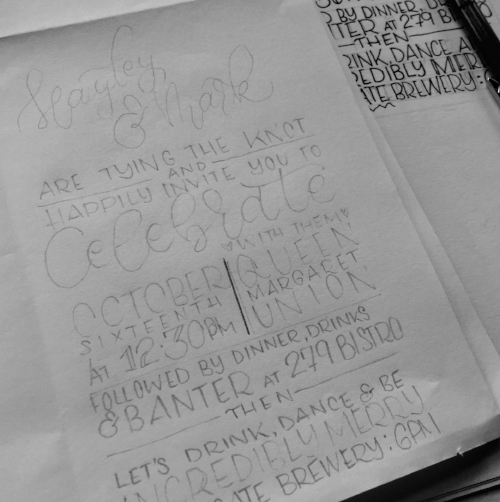 Hayley
& Mark
ARE TYING THE KNOT
AND
HAPPILY INVITE YOU TO
Celebrate
WITH THEM
OCTOBER
SIXTEENTH
AT 12:30PM
QUEEN
MARGARET
UNION
FOLLOWED BY DINNER, DRINKS
& BANTER AT 279 BISTRO
THEN
LET'S DRINK, DANCE & BE
INCREDIBLY MERRY
ATE BREWERY: 6PM
BY DINNER, D
TER AT 279 B
THEN
RINK, DANCE A
EDIBLY MER
ATE BREWERY: